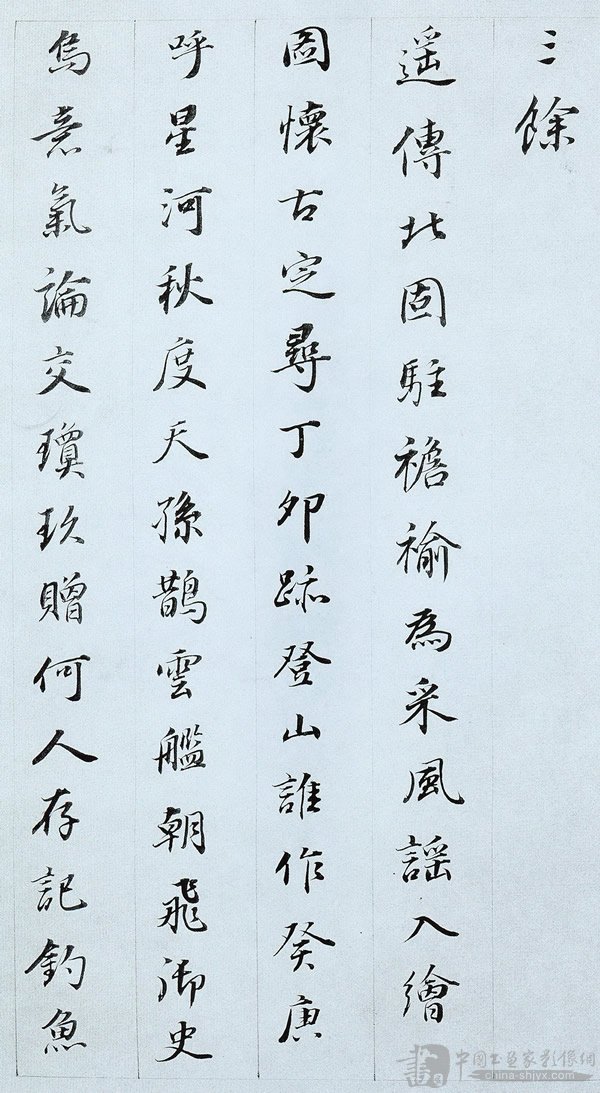 三餘
遥傳北固駐襜褕為采風謡入繪
圖懷古定尋丁卯跡登山誰作癸庚
呼星河秋度天孫鵲雲艦朝飛御史
烏意氣論交瓊玖贈何人存記釣魚
中国书画家影像網
china-shjyx.com